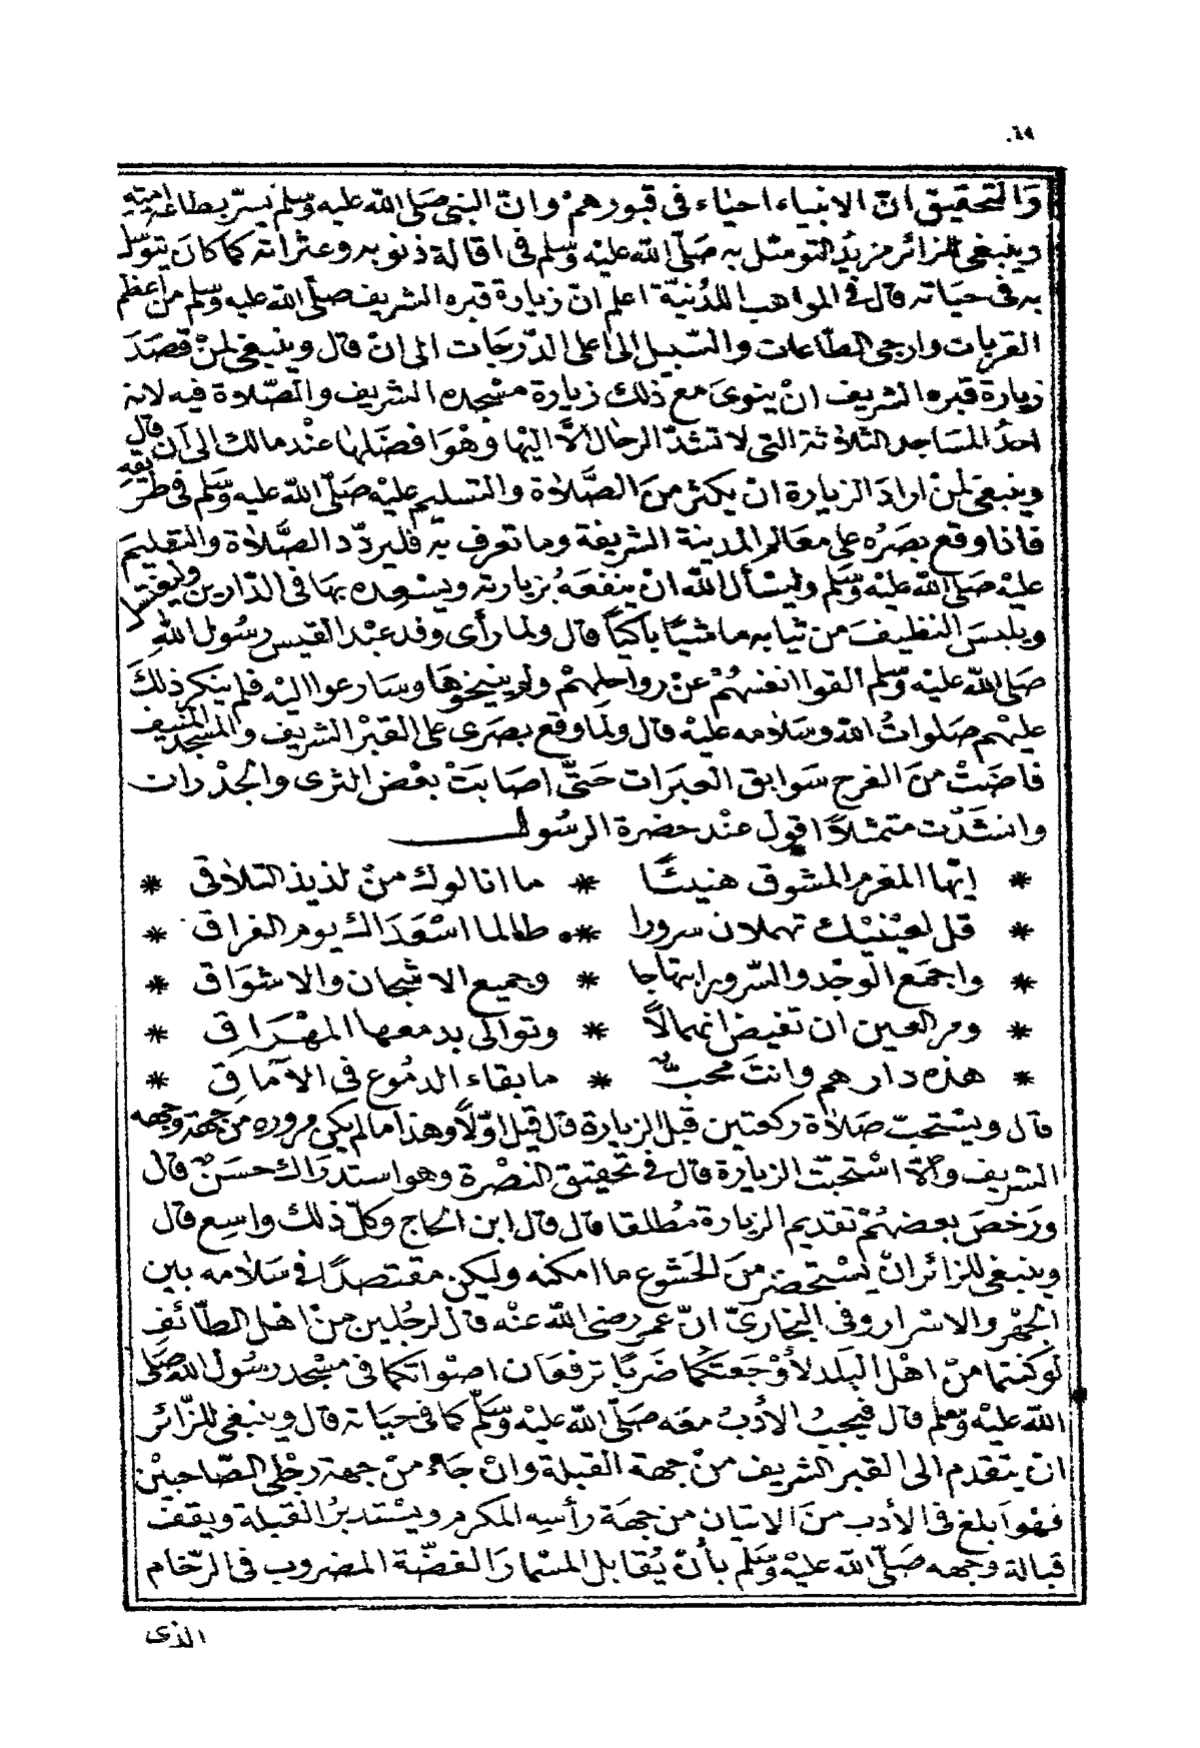 ٦٩٠
وَالتحقيق انّ الانبياء احياء فى قبورهمْ وانّ النبى صَلى الله عليه وسلم يسرّ بطاعة امته
وينبغى للزائر مزيدُ التوسل به صَلّى الله عليْه وسلم فى اقالة ذنوبه وعثراته كما كانَ يتوسل
به فى حيَاته قال فى المواهب اللدُنيّة اعلم انّ زيارة قبره الشريف صلّى الله عليه وسلم من اعظم
القربات وارجى الطّاعات والسّبيل الى اعلى الدّرجَات الى انْ قال وينبغى لمنْ قصَدَ
زيارة قبره الشريف انْ ينوىَ مع ذلك زيارة مسْجده الشريف والصّلاة فيه لانه
احدُ المسَاجد الثلاثة التى لا تشدّ الرحال الّا اليْها وهْوَ افضلها عنْد مالك الى اَن قال
وينبغى لمنْ ارادَ الزيارة ان يكثر منَ الصَّلاة والتسليم عليْه صَلّى الله عليه وسَلم فى طرَيقه
فاذا وقع بصَرُه على معَالم المدينة الشريفة وما تعرف به فليردّد الصَّلاة والتسليم
عليْه صَلى الله عليْه وسَلم وليسْأل الله انْ ينفعَهُ بزيارته ويسْعده بهَا فى الدّارين وليغتسل
ويلبسَ النظيفَ من ثيابه مَاشيًا باكيًا قال ولما رأى وفد عبْد القيس رسُول اللهِ
صَلى الله عليْه وسَلم القوا انفسَهُمْ عنْ رواحلهمْ ولم ينيخوهَا وسَارعوا اليْه فلم ينكر ذلكَ
عليْهم صَلواتُ الله وسَلامه عليْه قال ولما وقع بصَرى على القبْر الشريف والمسْجد المنيف
فاضَتْ منَ الفرح سَوابق العبَرات حَتّى اصَابَتْ بعْض الثرى والجدْرات
وانشدْت متمثلاً اقول عنْد حضرة الرسُول
* ايّها المغرم المشوق هنيئًا * ما انا لوك منْ لذيذ التلاقى *
* قل لعيْنيْك تهملان سرورا * طالما اسْعَدَاك يوم الفراق *
* واجمَع الوجْد والسّرور ابتهاجا * وجميع الاشجان والاشوَاق *
* ومر العين ان تفيضَ انهمالاً * وتوالى بدمعها المهْرَاقِ *
* هذه دارهم وانتَ محبٌّ * ما بقاء الدمُوع فى الآمَاقِ *
قال ويسْتحبّ صَلاة ركعتين قبْل الزيارة قال قيل اوّلاً وهذا مالم يكن مروره من جهَة وجهه
الشريف والّا اسْتحبّت الزيارة قال فى تحْقيق النصْرة وهو استدرَاك حسَنٌ قال
ورَخصَ بعضهُمْ تقديم الزيارة مُطلقا قال قال ابن الحاج وكلّ ذلك واسِع قال
وينبغى للزائر انْ يسْتحْضر منَ الخشوع ما امكنه وليكن مقتصدًا فى سَلامه بين
الجهْر والاسْرار وفى البخارىّ انّ عمر رضى الله عنْه قال لرجُلين منْ اهْل الطّائف
لوْ كنتما منْ اهْل البَلد لأوْجَعتكما ضَربًا ترفعَان اصْواتكما فى مسْجد رسُول الله صَلى
الله عليْه وسَلم قال فيجبُ الأدبُ معَه صَلّى الله عليْه وسَلّم كما فى حيَاته قال وينبغى للزّائر
ان يتقدم الى القبر الشريف منْ جهة القبلة وانْ جَاء منْ جهة رجْلى الصّاحبيْن
فهْوَ ابلغ فى الأدب منَ الاتيان من جهَة رأسه المكرم ويسْتدبرُ القبْلة ويقفُ
قبالة وجهه صَلّى الله عليْه وسَلم بأنْ يُقابل المسْمارَ الفضّة المضروب فى الرّخام
الذى